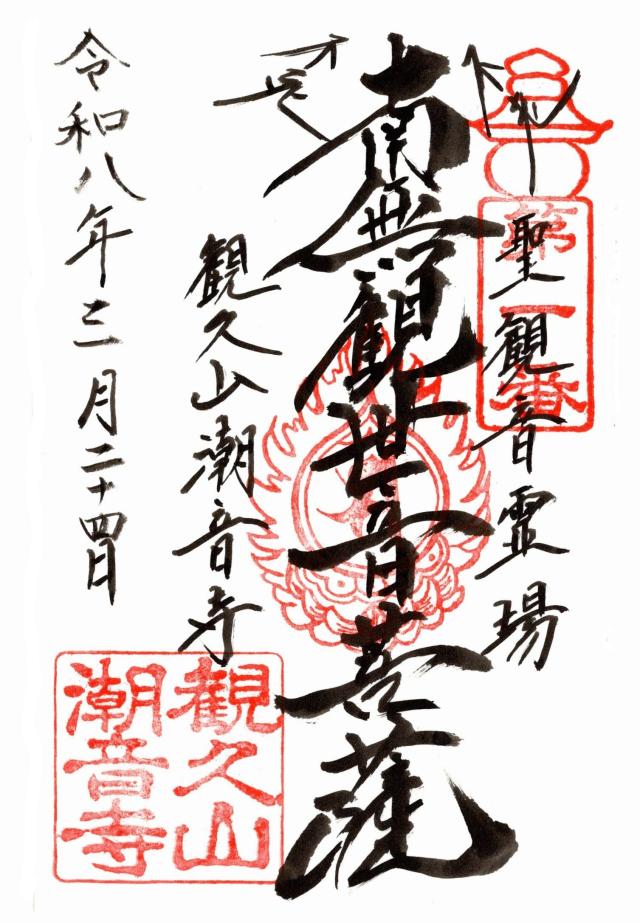 第一番
聖観音霊場
南無観世音菩薩
観久山潮音寺
令和八年三月二十四日
観久山
潮音寺